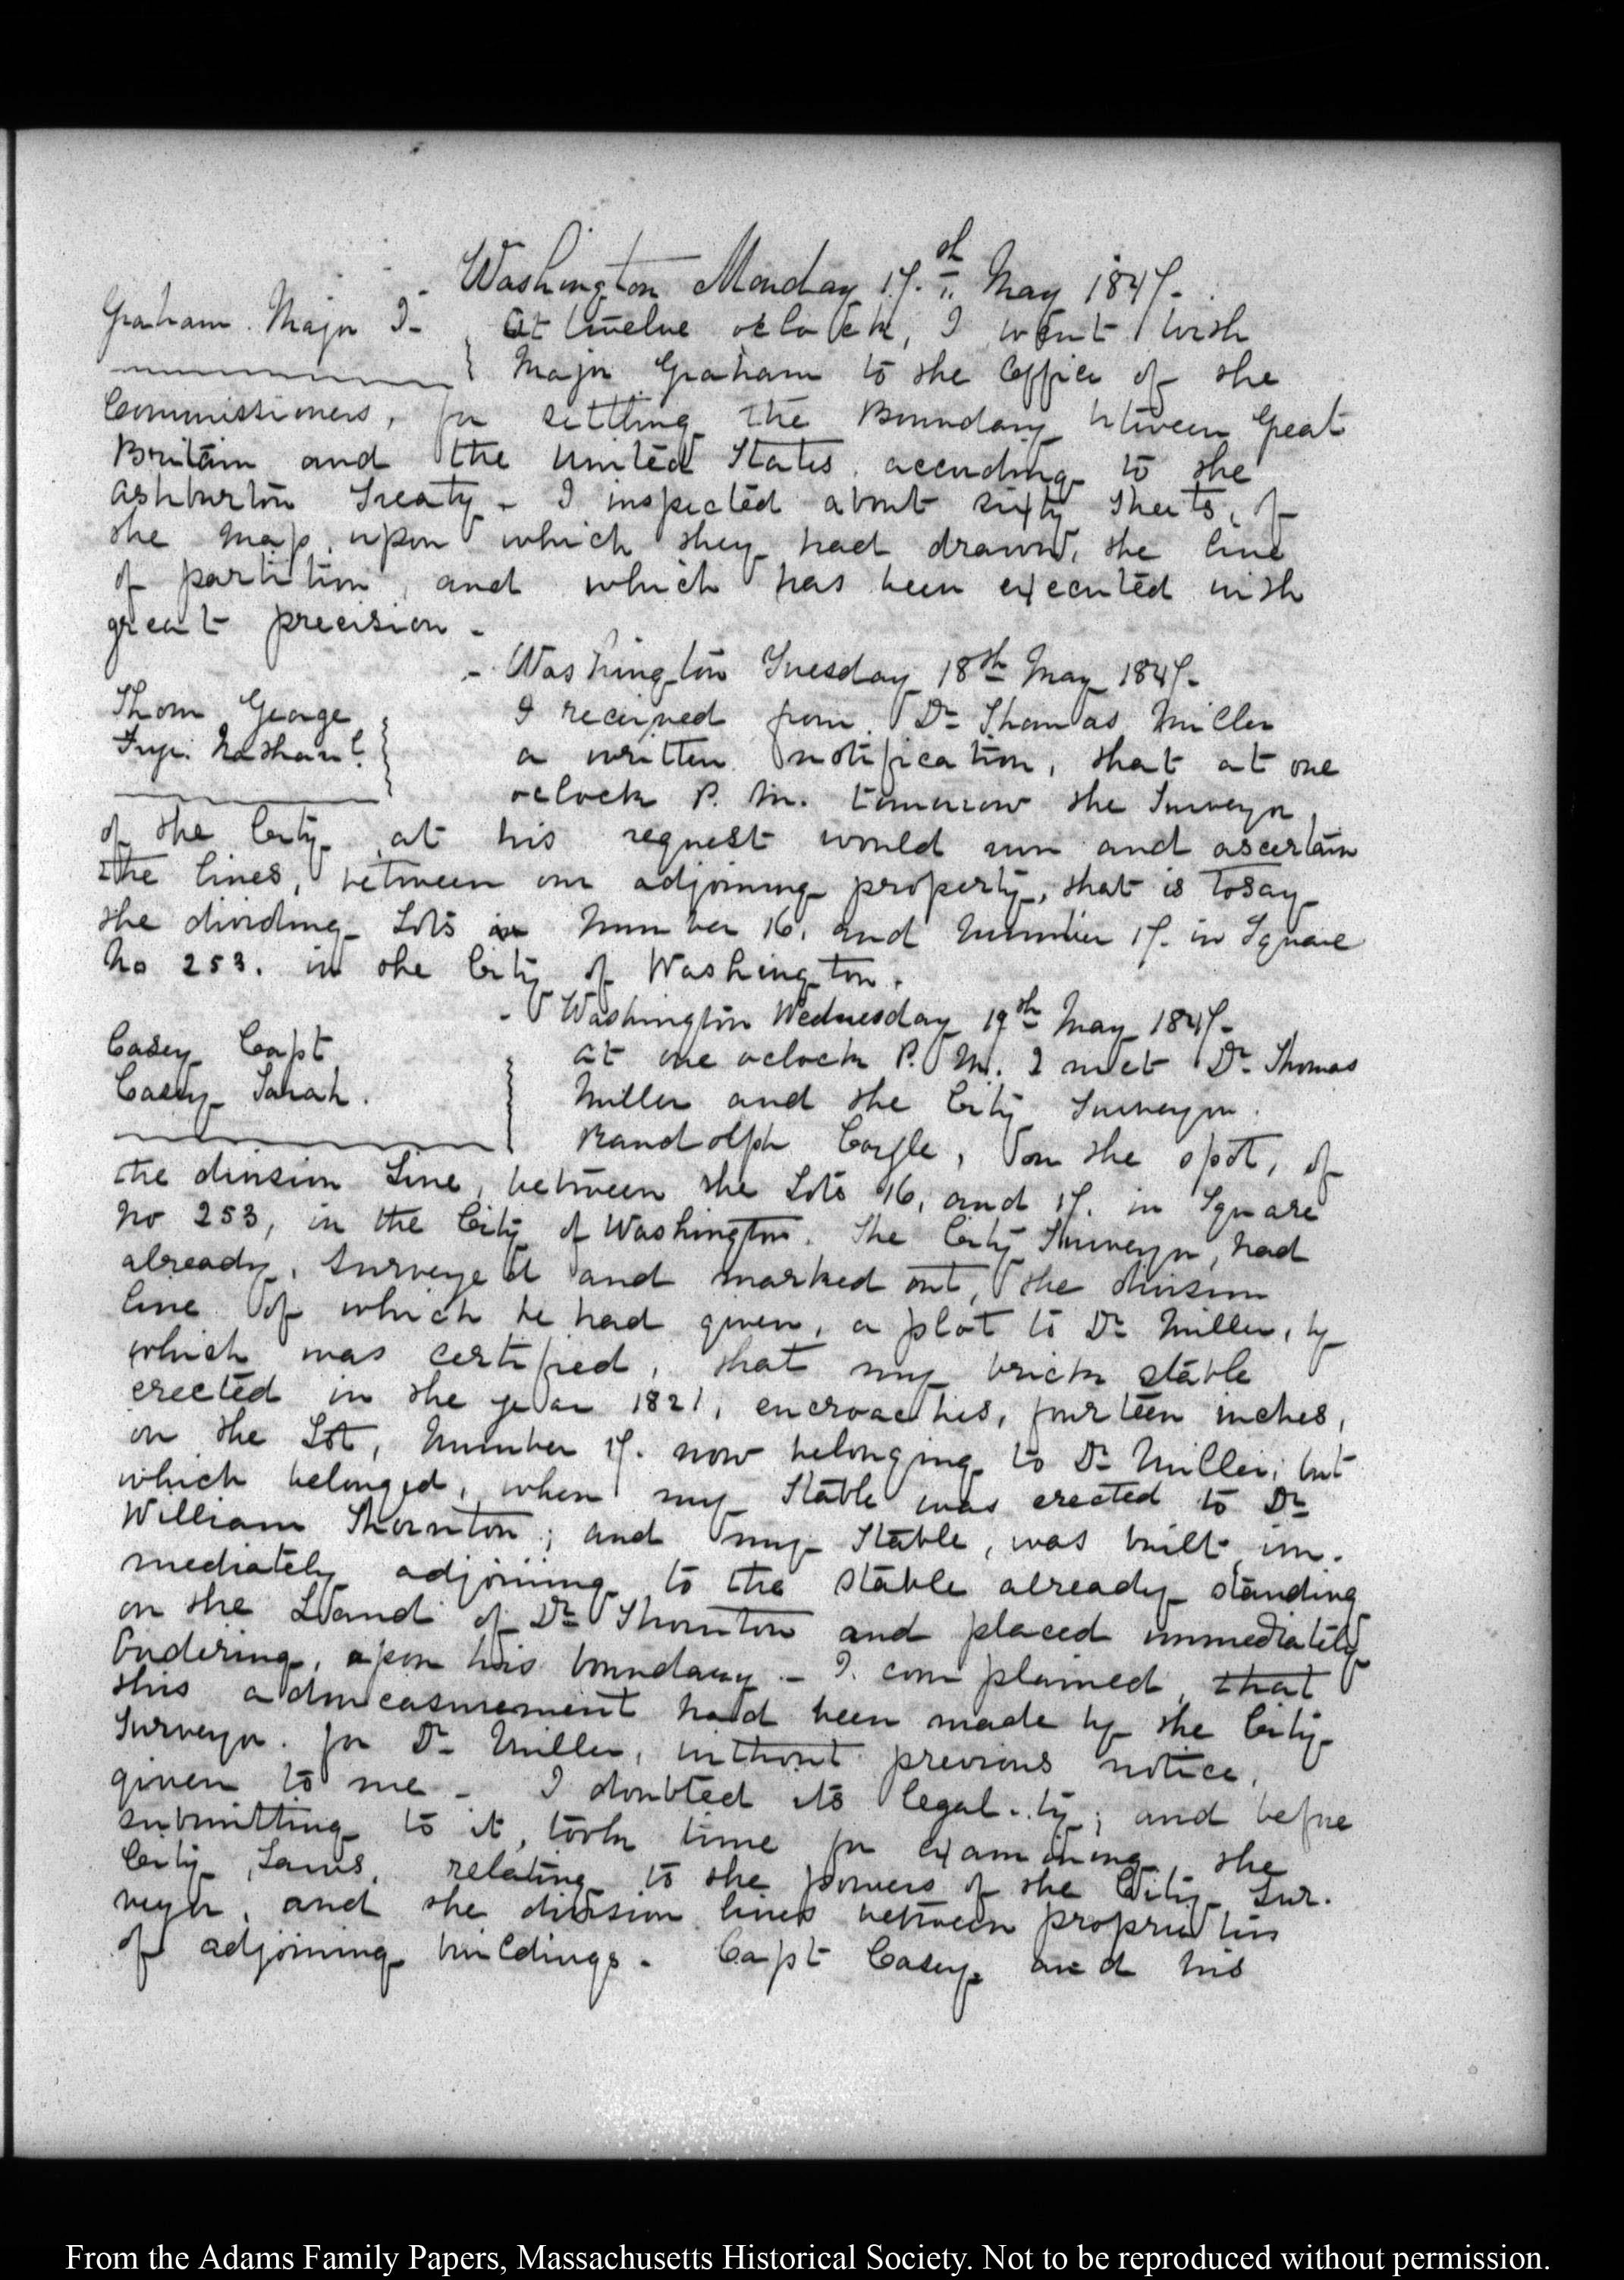 Washington Monday 17.th May 1847.
Graham. Major J- At twelve oclock, I went with
Major Graham to the Office of the
Commissioners, for settling the Boundary between Great
Britain and the United States according to the
Ashburton Treaty - I inspected about sixty Sheets, of
the Map, upon which they had drawn, the line
of partition, and which has been executed with
great precision -
- Washington Tuesday 18th May 1847-
Thom George I received from Dr Thomas Miller
Nathanl. a written notification, that at one
oclock P. M. tomorrow the Surveyor,
of the City at his request would run and ascertain
the lines, between our adjoining property, that is to say
the dividing Lots Number 16. and Number 17. in Square
No 253. in the City of Washington.
- Washington Wednesday 19th May 1847-
Casey Capt At one oclock P. M. I met Dr Thomas
Casey Sarah. Miller and the City Surveyor.
Randolph Coyle, on the spot, of
the division Line, between the Lots 16, and 17. in Square
No 253, in the City of Washington. The City Surveyor, had
already, surveyed and marked out, the division
line of which he had given, a plot to Dr Miller, by
which was certified, that my brick stable
erected in the year 1821, encroaches, fourteen inches,
on the Lot, Number 17. now belonging to Dr Miller; but
which belonged, when my Stable was erected to Dr
William Thornton; and my Stable, was built im-
mediately adjoining to the stable already standing
on the Land of Dr Thornton and placed immediately
bordering, upon his boundary - I complained, that
this admeasurement had been made by the City
Surveyor. for Dr Miller, without previous notice,
given to me - I doubted its legality; and before
submitting to it, took time for examining, the
City Laws, relating to the powers of the City Sur-
veyor, and the division lines between proprieties
of adjoining buildings. Capt Casey and his
From the Adams Family Papers, Massachusetts Historical Society. Not to be reproduced without permission.